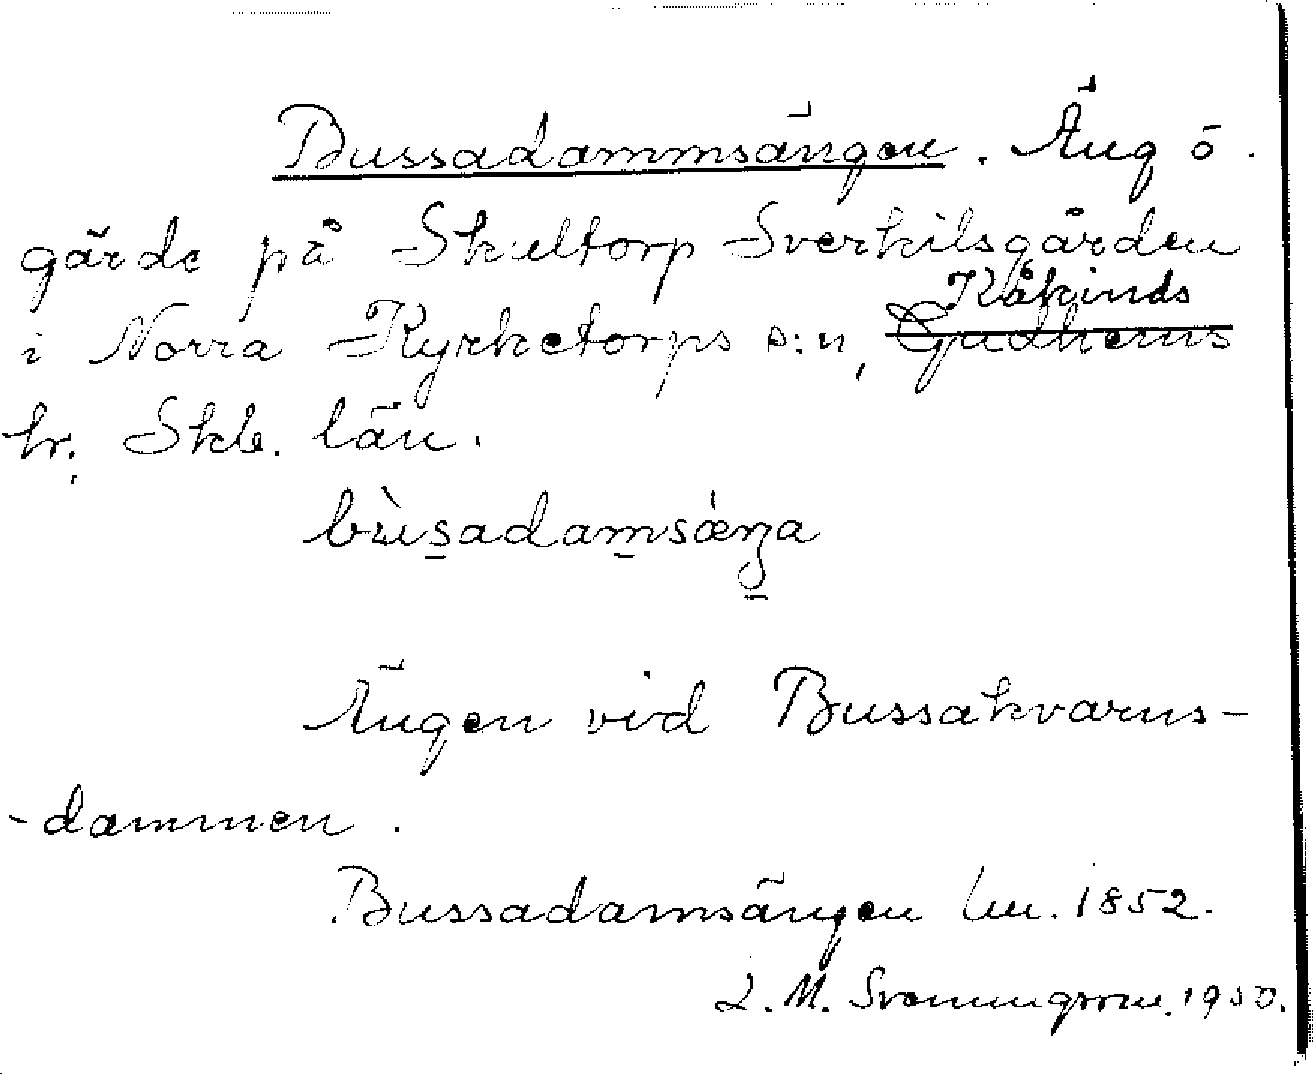 Bussadammsängen. Äng o.
gärde på Skultorp Sverkilsgården
Kåkinds
i Norra Kyrketorps s:n, Gudhems
hr. Skb. län.
bùs̲adam̲sæ̍ŋ̲a
Ängen vid Bussakvarns-
-dammen.
Bussadamsängen Lm. 1852.
L. M. Svenungsson. 1950.